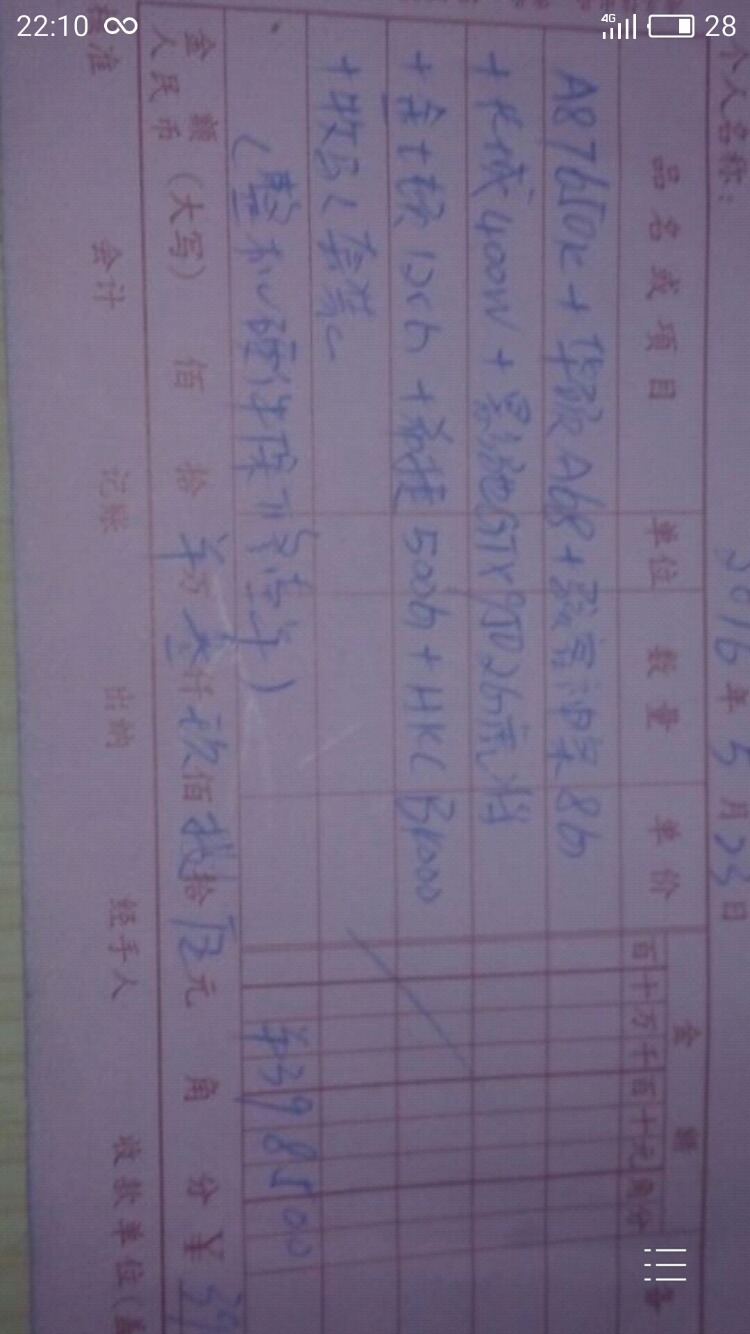 22:10
4G
28
2016年5月23日
个人名称：
品名或项目 单位 数量 单价 金额
百十万千百十元角分
A87650K+华硕A68+影驰8G
+长城400W+影驰GTX950 2G
+金士顿120G+希捷500G+HKC B4000
+牧马人套装
(整机硬件保
3985 00
金额人民币（大写） 佰 拾 万叁仟玖佰捌拾伍元 角 分 ¥
准 会计 记账 出纳 经手人 收款单位